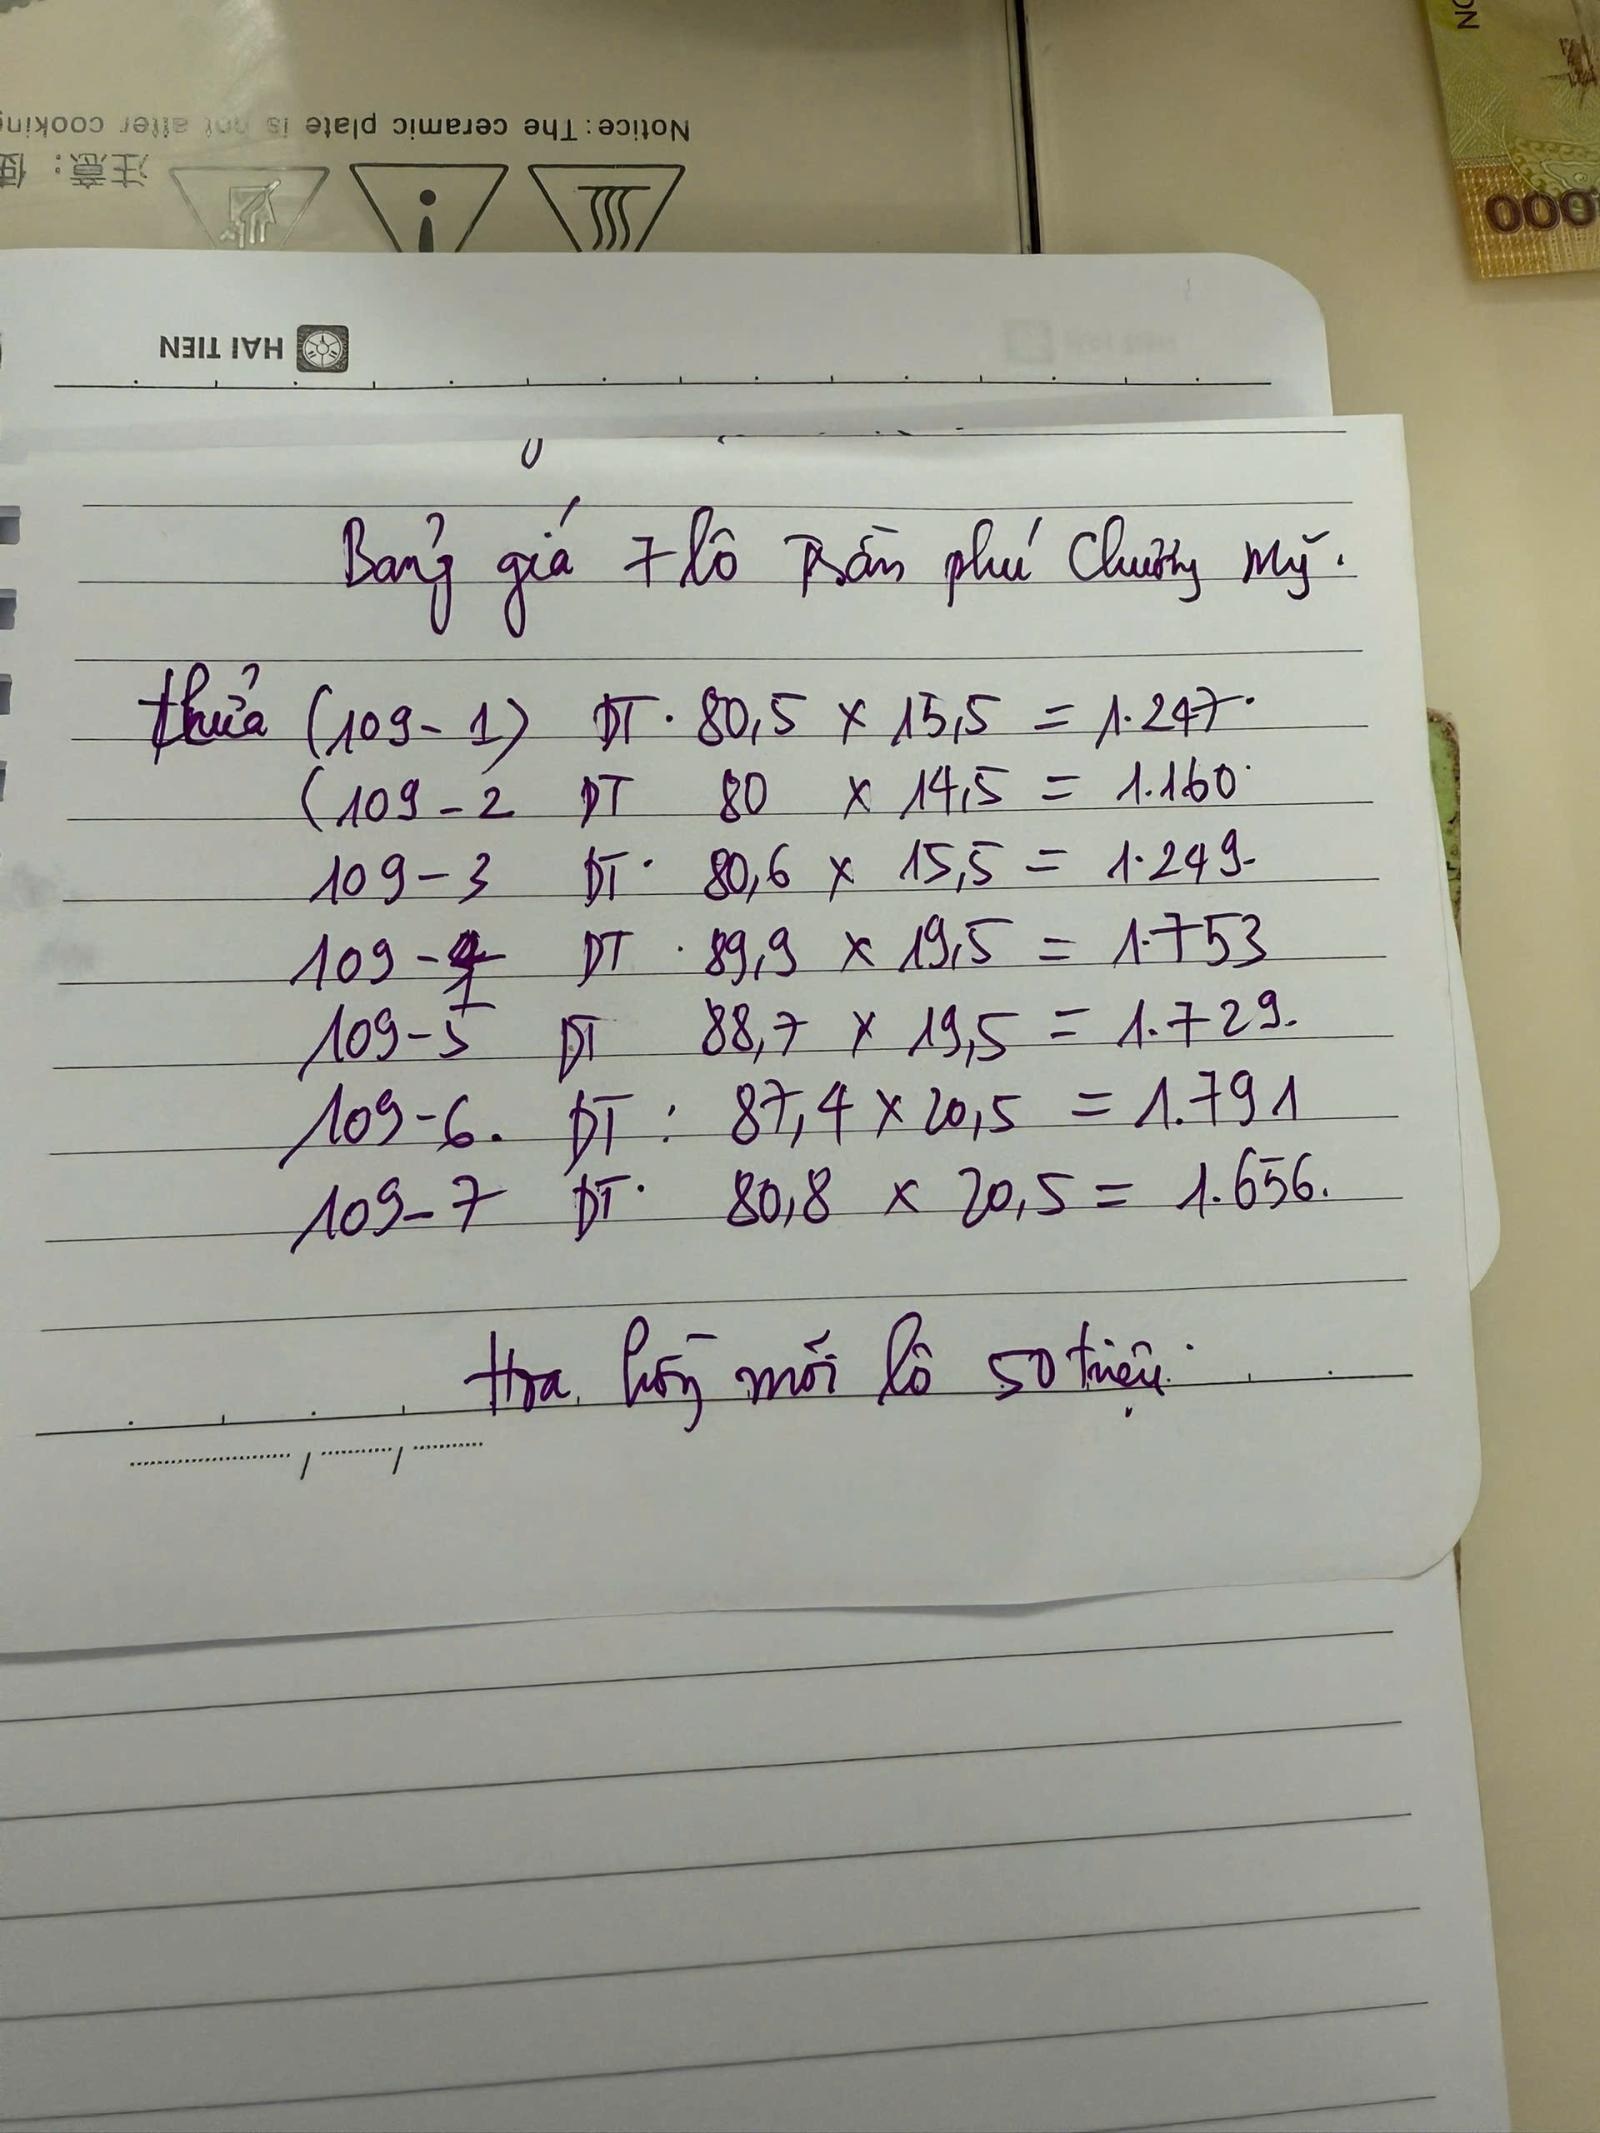 Notice: The ceramic plate is hot after cooking
注意：使
000
HAI TIEN
Bảng giá 7 lô Trần phú Chương Mỹ.
thửa (109-1) DT. 80,5 x 15,5 = 1.247.
(109-2 DT 80 x 14,5 = 1.160.
109-3 DT. 80,6 x 15,5 = 1.249.
109-4 DT. 89,9 x 19,5 = 1.753
109-5 DT 88,7 x 19,5 = 1.729.
109-6. DT: 87,4 x 20,5 = 1.791
109-7 DT. 80,8 x 20,5 = 1.656.
Hoa hồng mỗi lô 50 triệu.